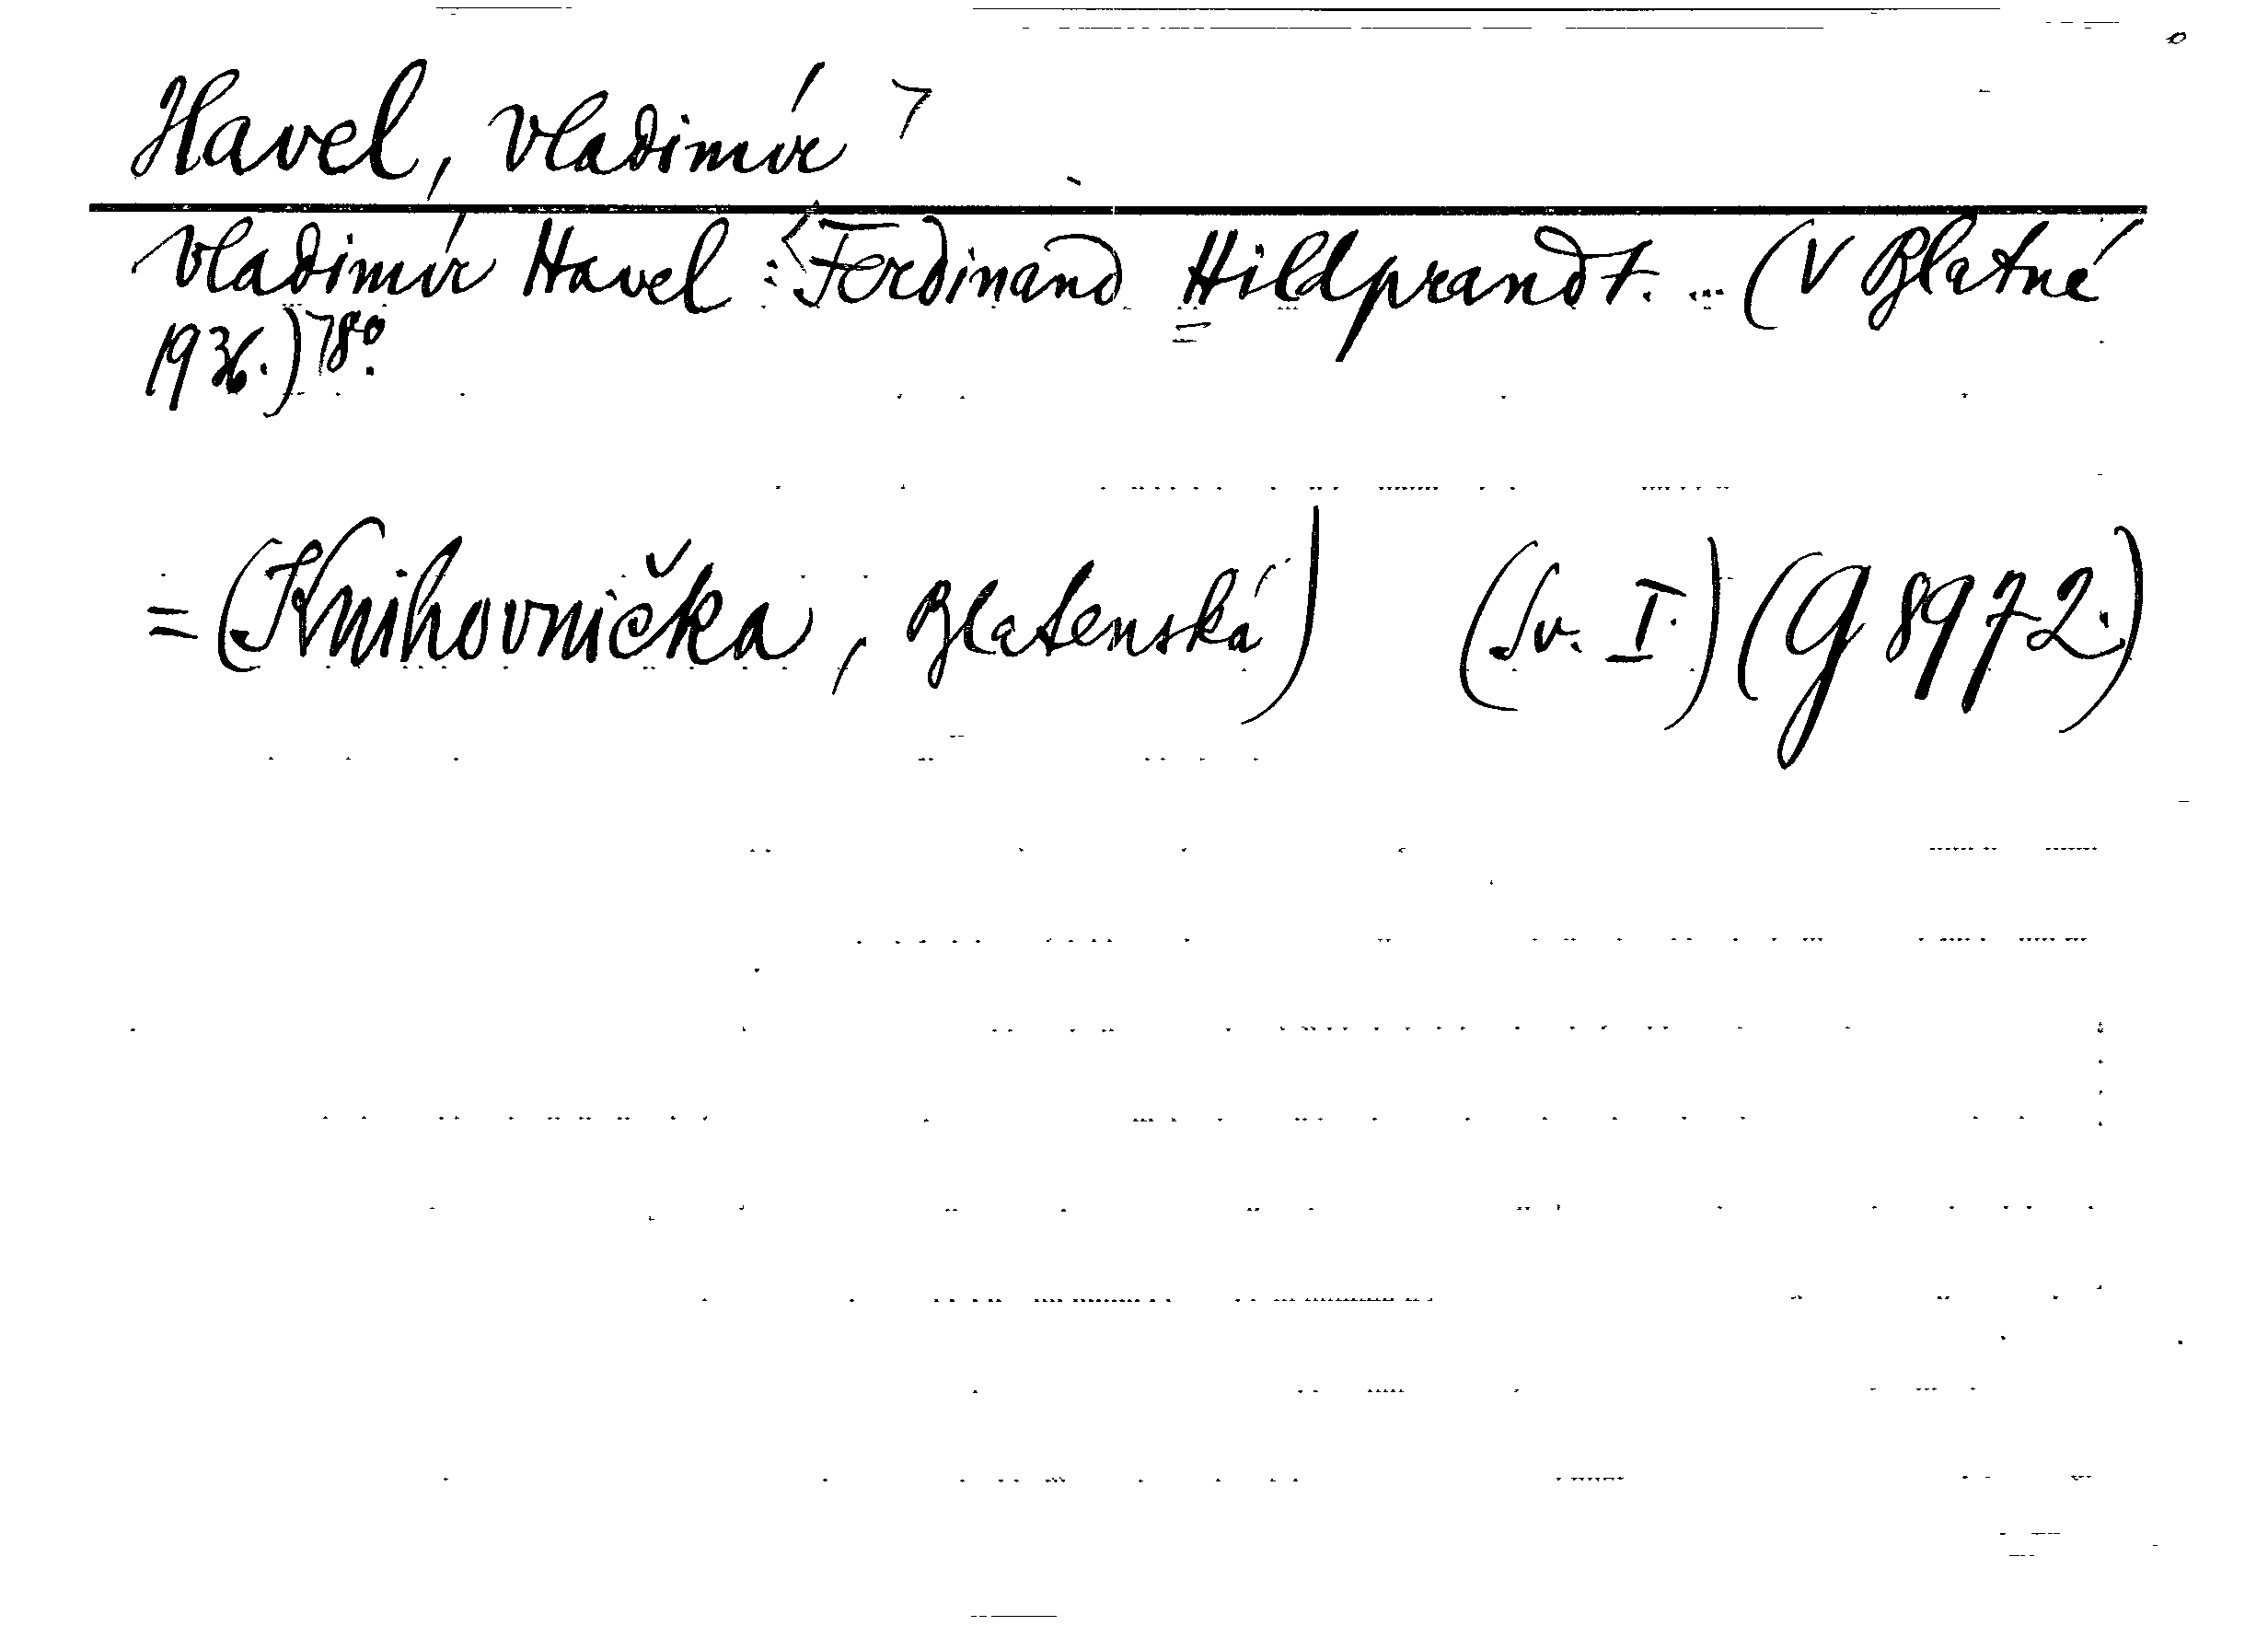 Havel, Vladimír ⁊
Vladimír Havel : <Ferdinand Hildprandt. ... (V Blatné
1936.) ⁊ 8°.
= (Knihovnička, Blatenská) (Sv. I.) (G 8972.)